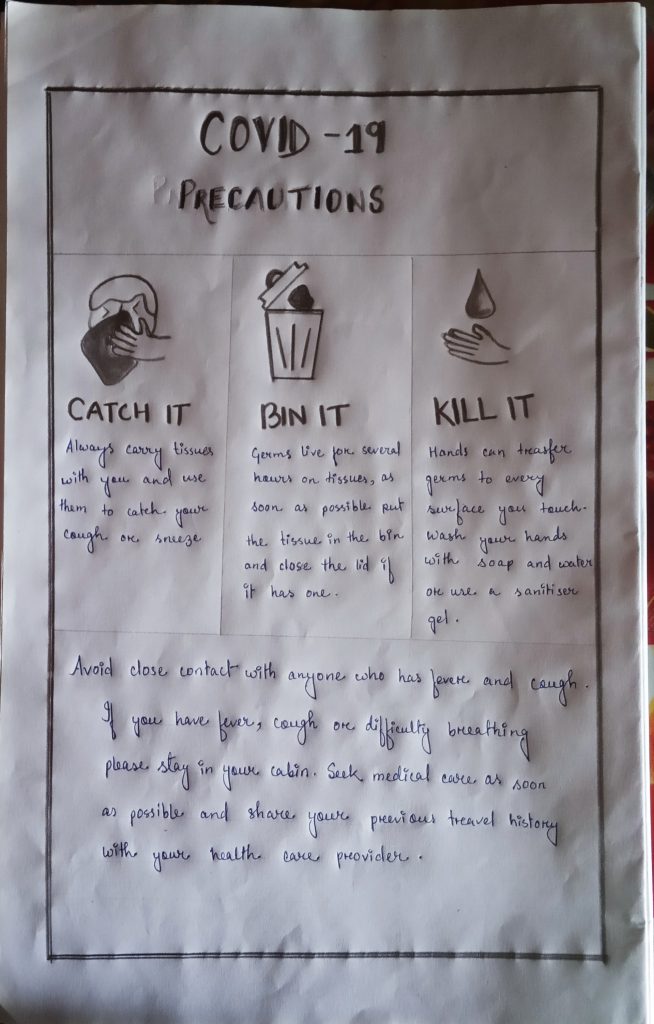 COVID -19
PRECAUTIONS
CATCH IT
Always carry tissues
with you and use
them to catch your
cough or sneeze
BIN IT
Germs live for several
hours on tissues, as
soon as possible put
the tissue in the bin
and close the lid if
it has one.
KILL IT
Hands can trasfer
germs to every
surface you touch.
Wash your hands
with soap and water
or use a sanitiser
gel.
Avoid close contact with anyone who has fever and cough.
If you have fever, cough or difficulty breathing
please stay in your cabin. Seek medical care as soon
as possible and share your previous travel history
with your health care provider.